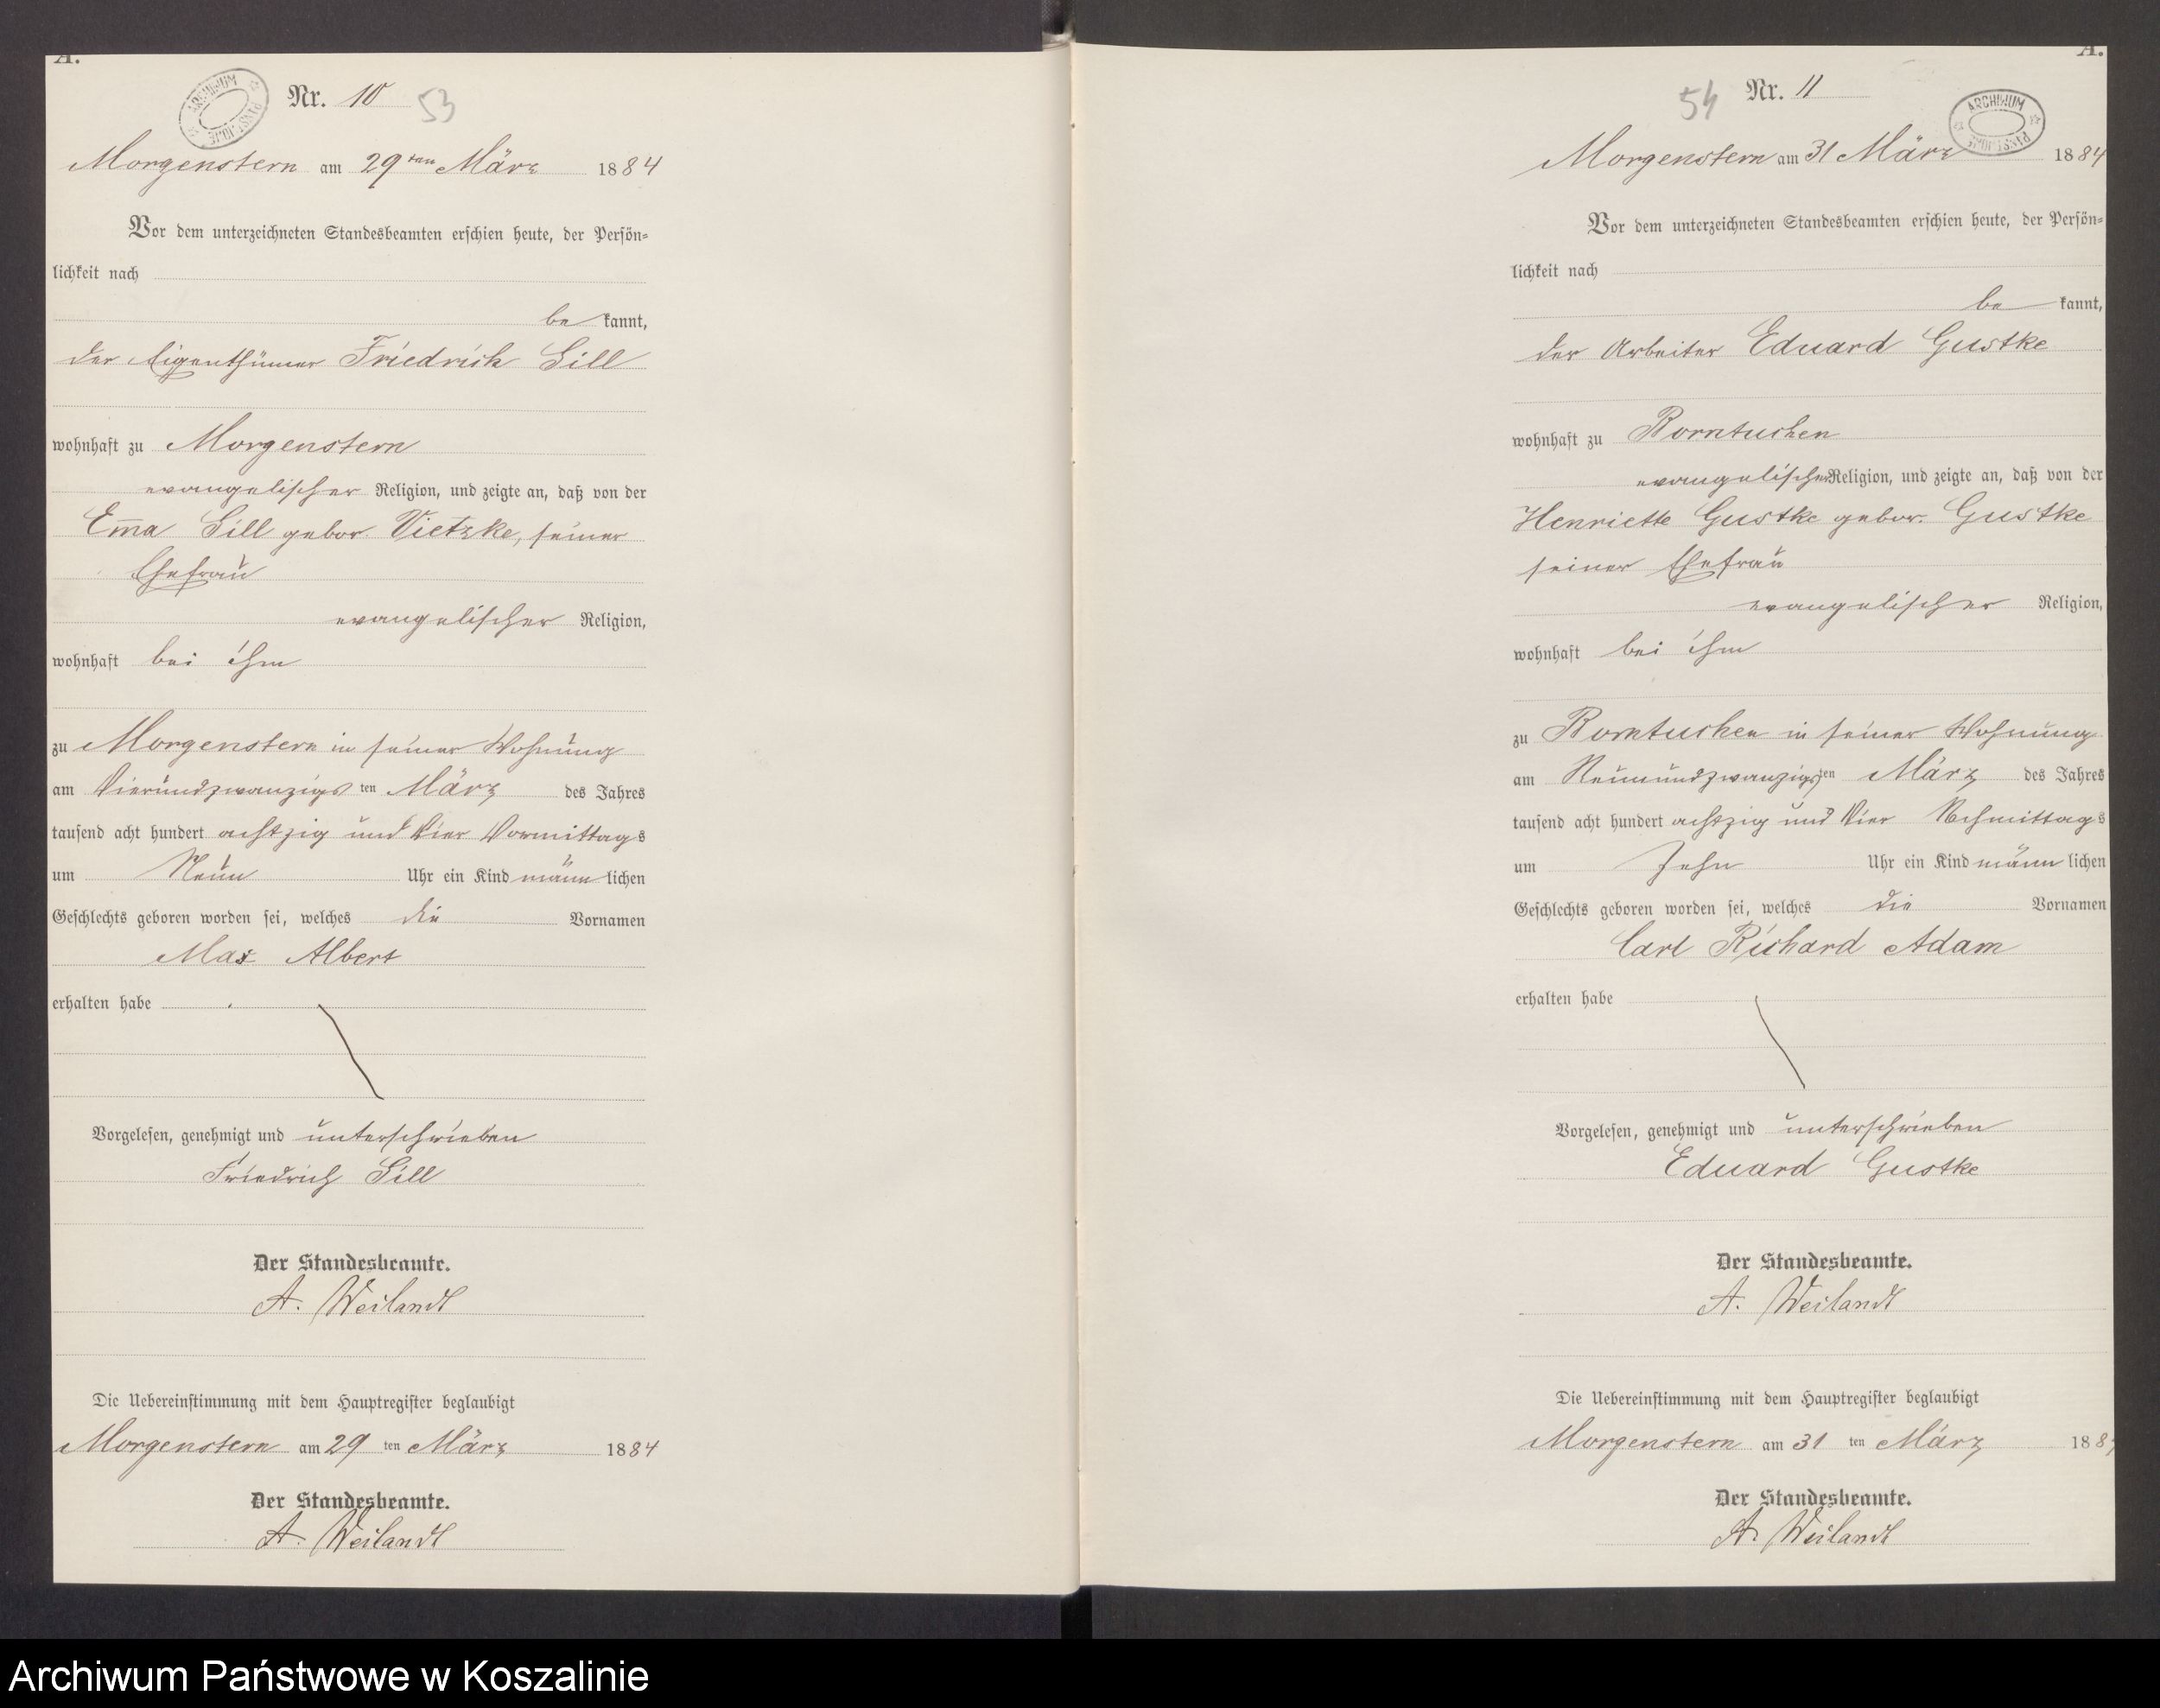 A.
ARCHIWUM PAŃSTWOWE
Nr. 10 53
Morgenstern am 29ten März 1884
Vor dem unterzeichneten Standesbeamten erschien heute, der Persön-
lichkeit nach
be kannt,
der Eigenthümer Friedrich Sill
wohnhaft zu Morgenstern
evangelischer Religion, und zeigte an, daß von der
Em̄a Sill gebor. Vietzke, seiner
Ehefrau
evangelischer Religion,
wohnhaft bei ihm
zu Morgenstern in seiner Wohnung
am Vierundzwanzigsten März des Jahres
tausend acht hundert achtzig und Vier Vormittags
um Neun Uhr ein Kind männlichen
Geschlechts geboren worden sei, welches die Vornamen
Max Albert
erhalten habe
Vorgelesen, genehmigt und unterschrieben
Friedrich Sill
Der Standesbeamte.
A. Weilandt
Die Uebereinstimmung mit dem Hauptregister beglaubigt
Morgenstern am 29 ten März 1884
Der Standesbeamte.
A. Weilandt
A.
54 Nr. 11
ARCHIWUM PAŃSTWOWE
Morgenstern am 31 März 1884
Vor dem unterzeichneten Standesbeamten erschien heute, der Persön-
lichkeit nach
be kannt,
der Arbeiter Eduard Gustke
wohnhaft zu Borntuchen
evangelischer Religion, und zeigte an, daß von der
Henriette Gustke gebor. Gustke
seiner Ehefrau
evangelischer Religion,
wohnhaft bei ihm
zu Borntuchen in seiner Wohnung
am Neunundzwanzigsten März des Jahres
tausend acht hundert achtzig und Vier Nachmittags
um Zehn Uhr ein Kind männlichen
Geschlechts geboren worden sei, welches die Vornamen
Carl Richard Adam
erhalten habe
Vorgelesen, genehmigt und unterschrieben
Eduard Gustke
Der Standesbeamte.
A. Weilandt
Die Uebereinstimmung mit dem Hauptregister beglaubigt
Morgenstern am 31 ten März 188
Der Standesbeamte.
A. Weilandt
Archiwum Państwowe w Koszalinie